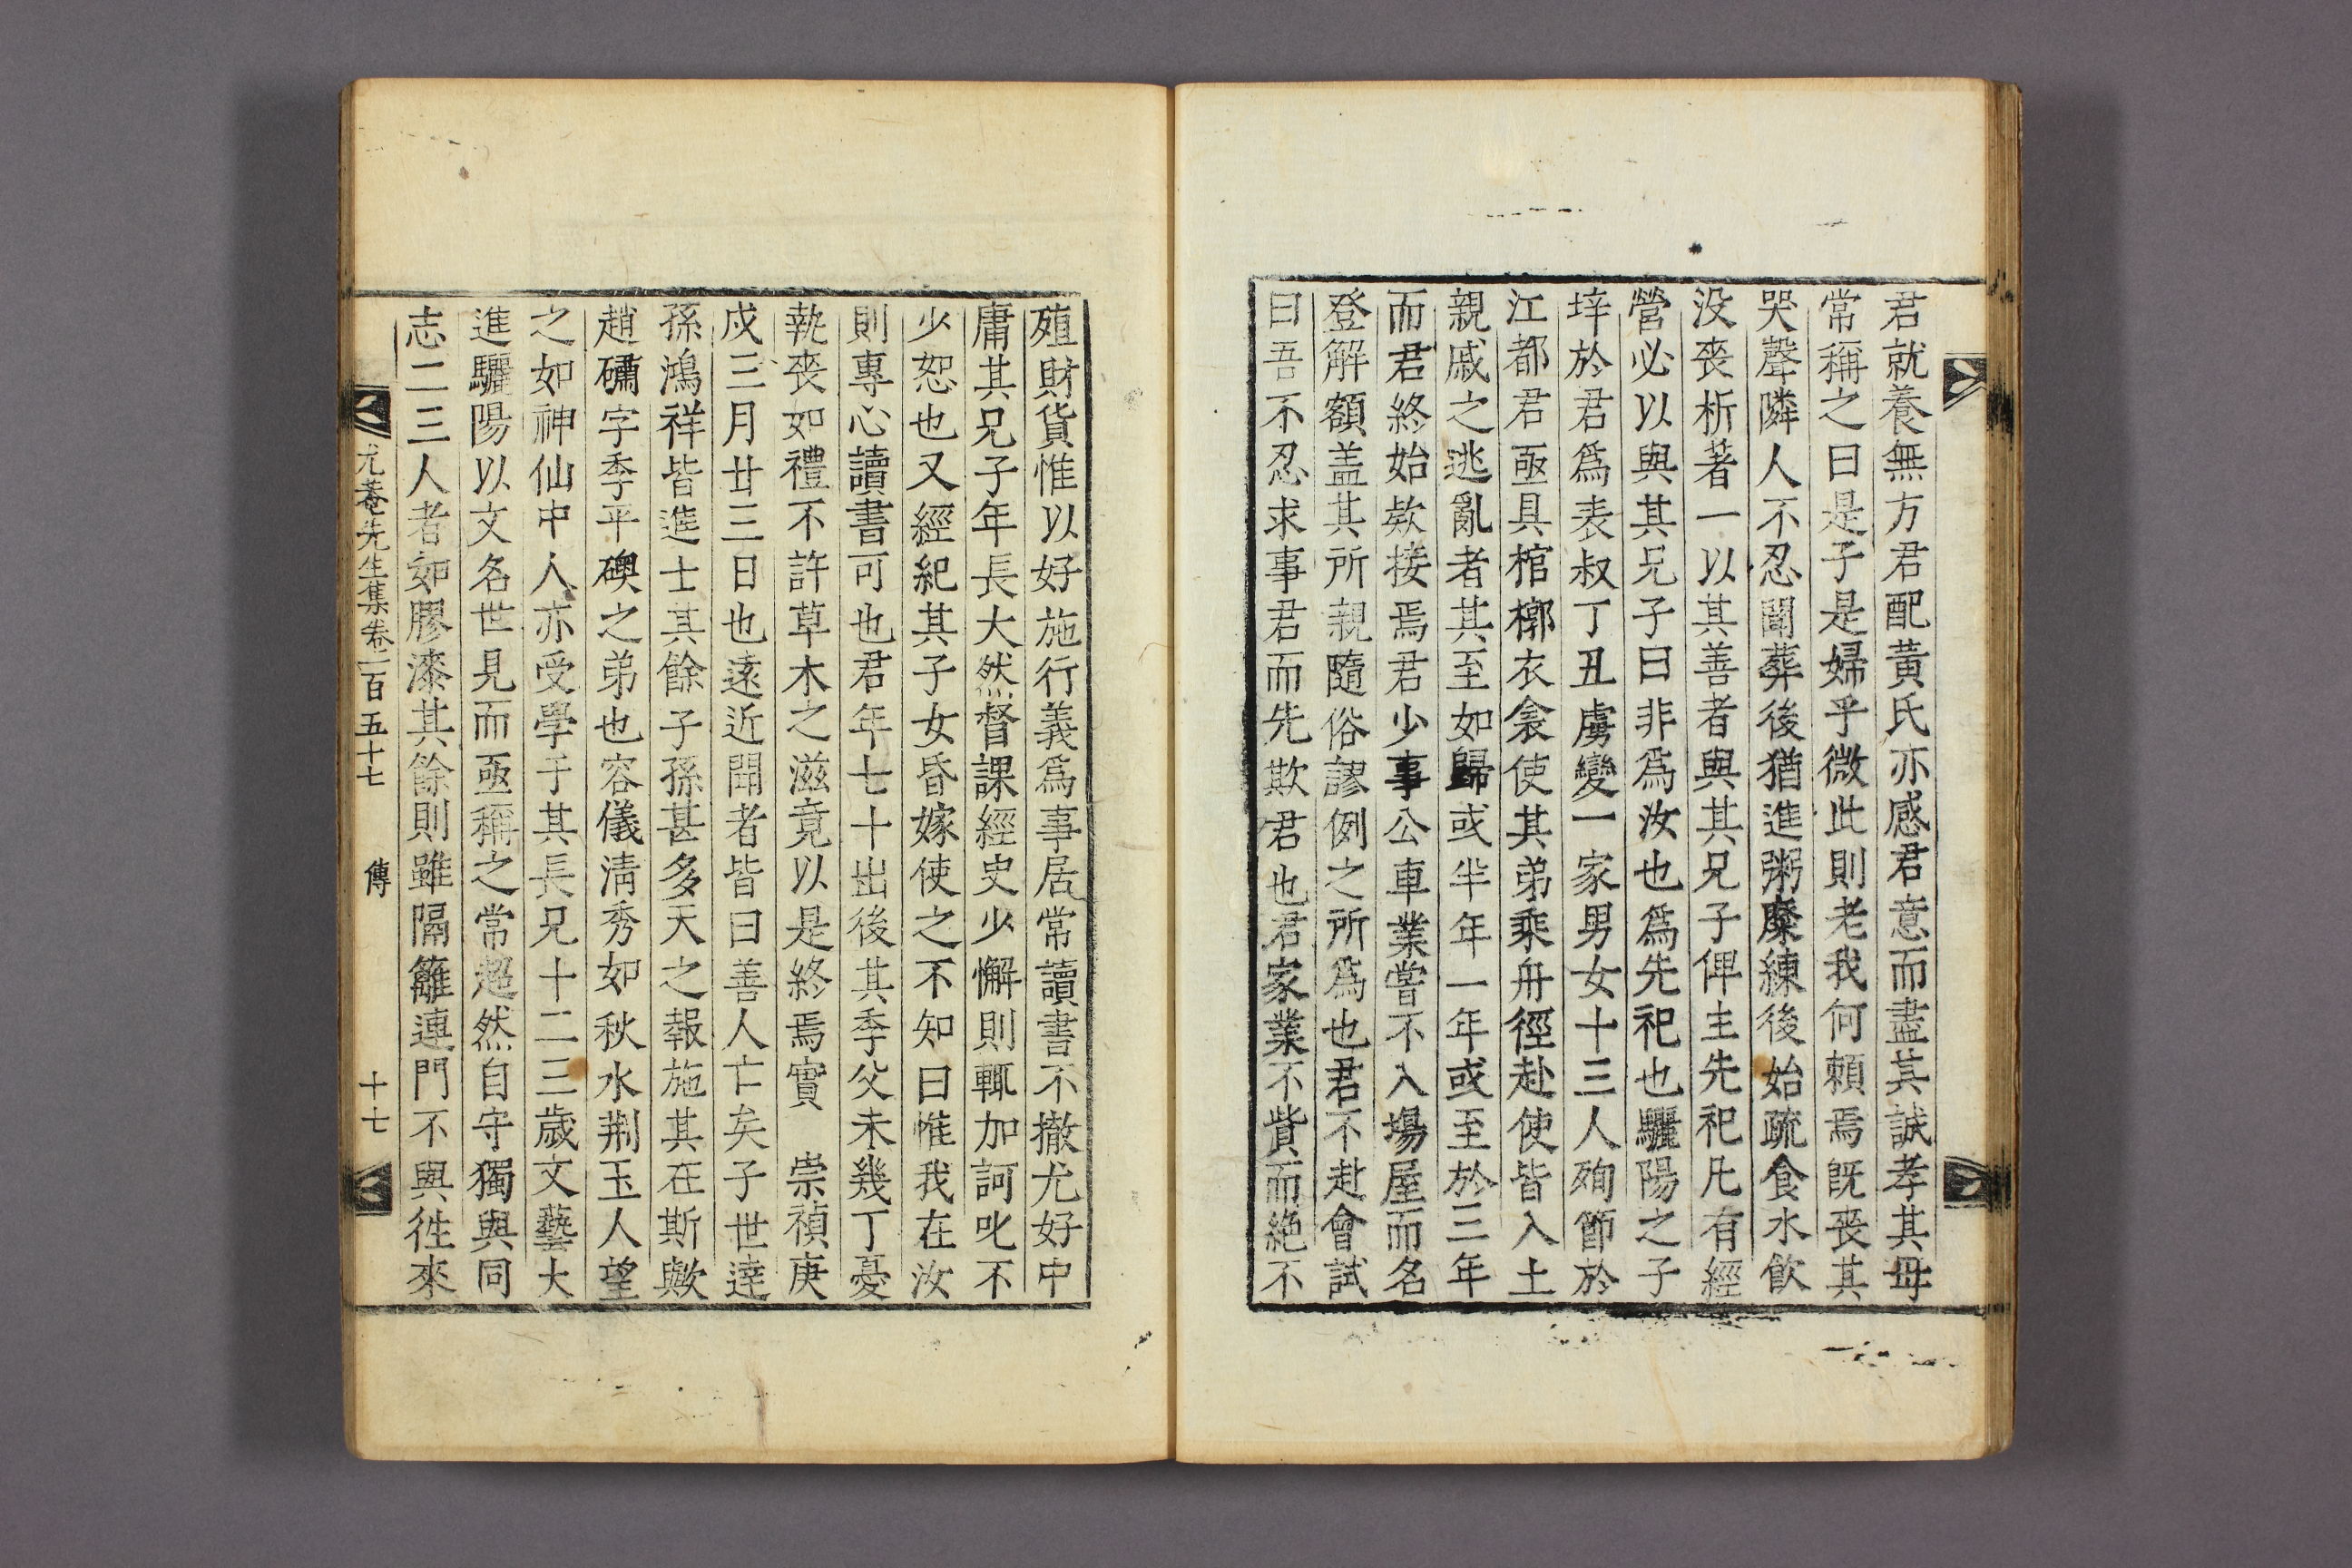 君就養無方君配黃氏亦感君意而盡其誠孝其母
常稱之曰是子是婦乎微此則老我何賴焉旣喪其
哭聲隣人不忍聞葬後猶進粥糜練後始疏食水飮
没喪析著一以其善者與其兄子俾主先祀凡有經
營必以與其兄子曰非爲汝也爲先祀也驪陽之子
垶於君爲表叔丁丑虜變一家男女十三人殉節於
江都君亟具棺槨衣衾使其弟乘舟徑赴使皆入土
親戚之逃亂者其至如歸或半年一年或至於三年
而君終始欵接焉君少事公車業嘗不入塲屋而名
登解額盖其所親隨俗謬例之所爲也君不赴會試
曰吾不忍求事君而先欺君也君家業不貲而絶不
殖財貨惟以好施行義爲事居常讀書不撤尤好中
庸其兄子年長大然督課經史少懈則輒加訶叱不
少恕也又經紀其子女昏嫁使之不知曰惟我在汝
則專心讀書可也君年七十出後其季父未幾丁憂
執喪如禮不許草木之滋竟以是終焉實 崇禎庚
戌三月廿三日也遠近聞者皆曰善人亡矣子世逹
孫鴻祥皆進士其餘子孫甚多天之報施其在斯歟
趙䃤字季平礇之弟也容儀淸秀如秋水荆玉人望
之如神仙中人亦受學于其長兄十二三歲文藝大
進驪陽以文名世見而亟稱之常超然自守獨與同
志二三人者如膠漆其餘則雖隔籬連門不與徃來
尤菴先生集卷一百五十七 傳 十七